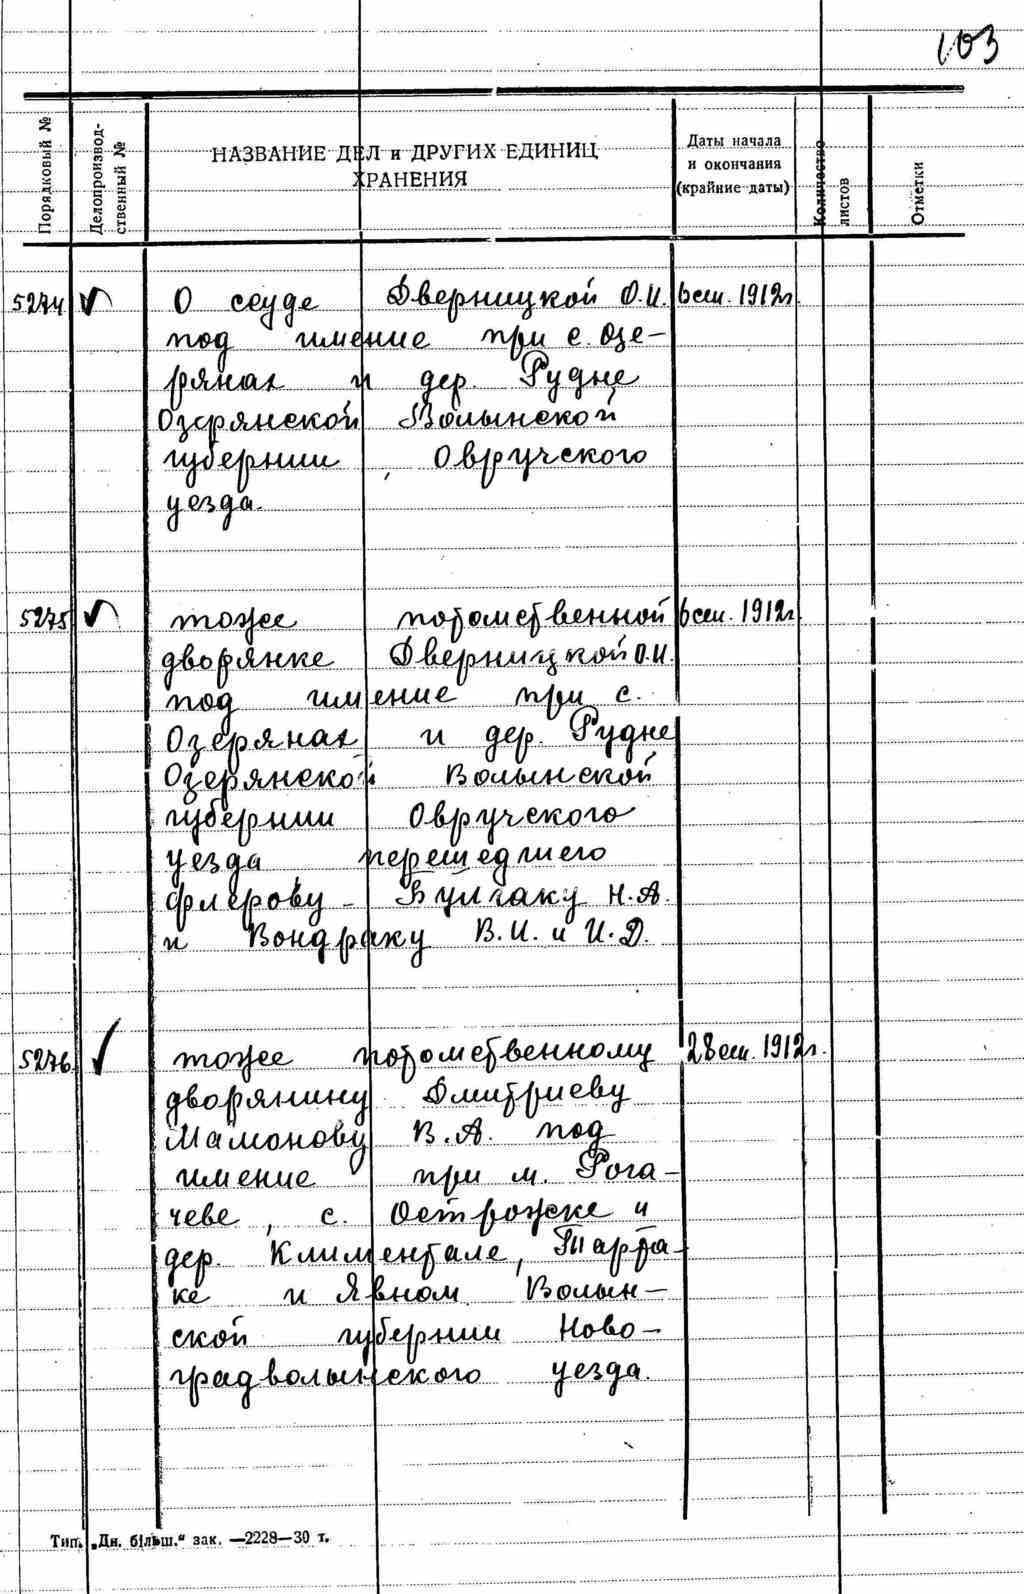 103
Порядковый №
Делопроизвод-
ственный №
НАЗВАНИЕ ДЕЛ и ДРУГИХ ЕДИНИЦ
ХРАНЕНИЯ
Даты начала
и окончания
(крайние даты)
Количество
листов
Отметки
5274 О ссуде Дверницкой О.И. 6 сен. 1912г.
под имение при с. Озе-
рянах и дер. Рудне
Озерянской Волынской
губернии, Овручского
уезда.
5275 тоже потомственной 6 сен. 1912г.
дворянке Дверницкой О.И.
под имение при с.
Озерянах и дер. Рудне
Озерянской Волынской
губернии Овручского
уезда перешедшего
Флерову - Булгаку Н.А.
и Вондраку В.И. и И.Д.
5276 тоже потомственному 28 сен. 1912г.
дворянину Дмитриеву
Мамонову В.А. под
имение при м. Рога-
чеве, с. Острожке и
дер. Климентале, Тарта-
ке и Явном Волын-
ской губернии Ново-
градволынского уезда.
Тип. „Дн. більш.“ зак. —2228—30 т.